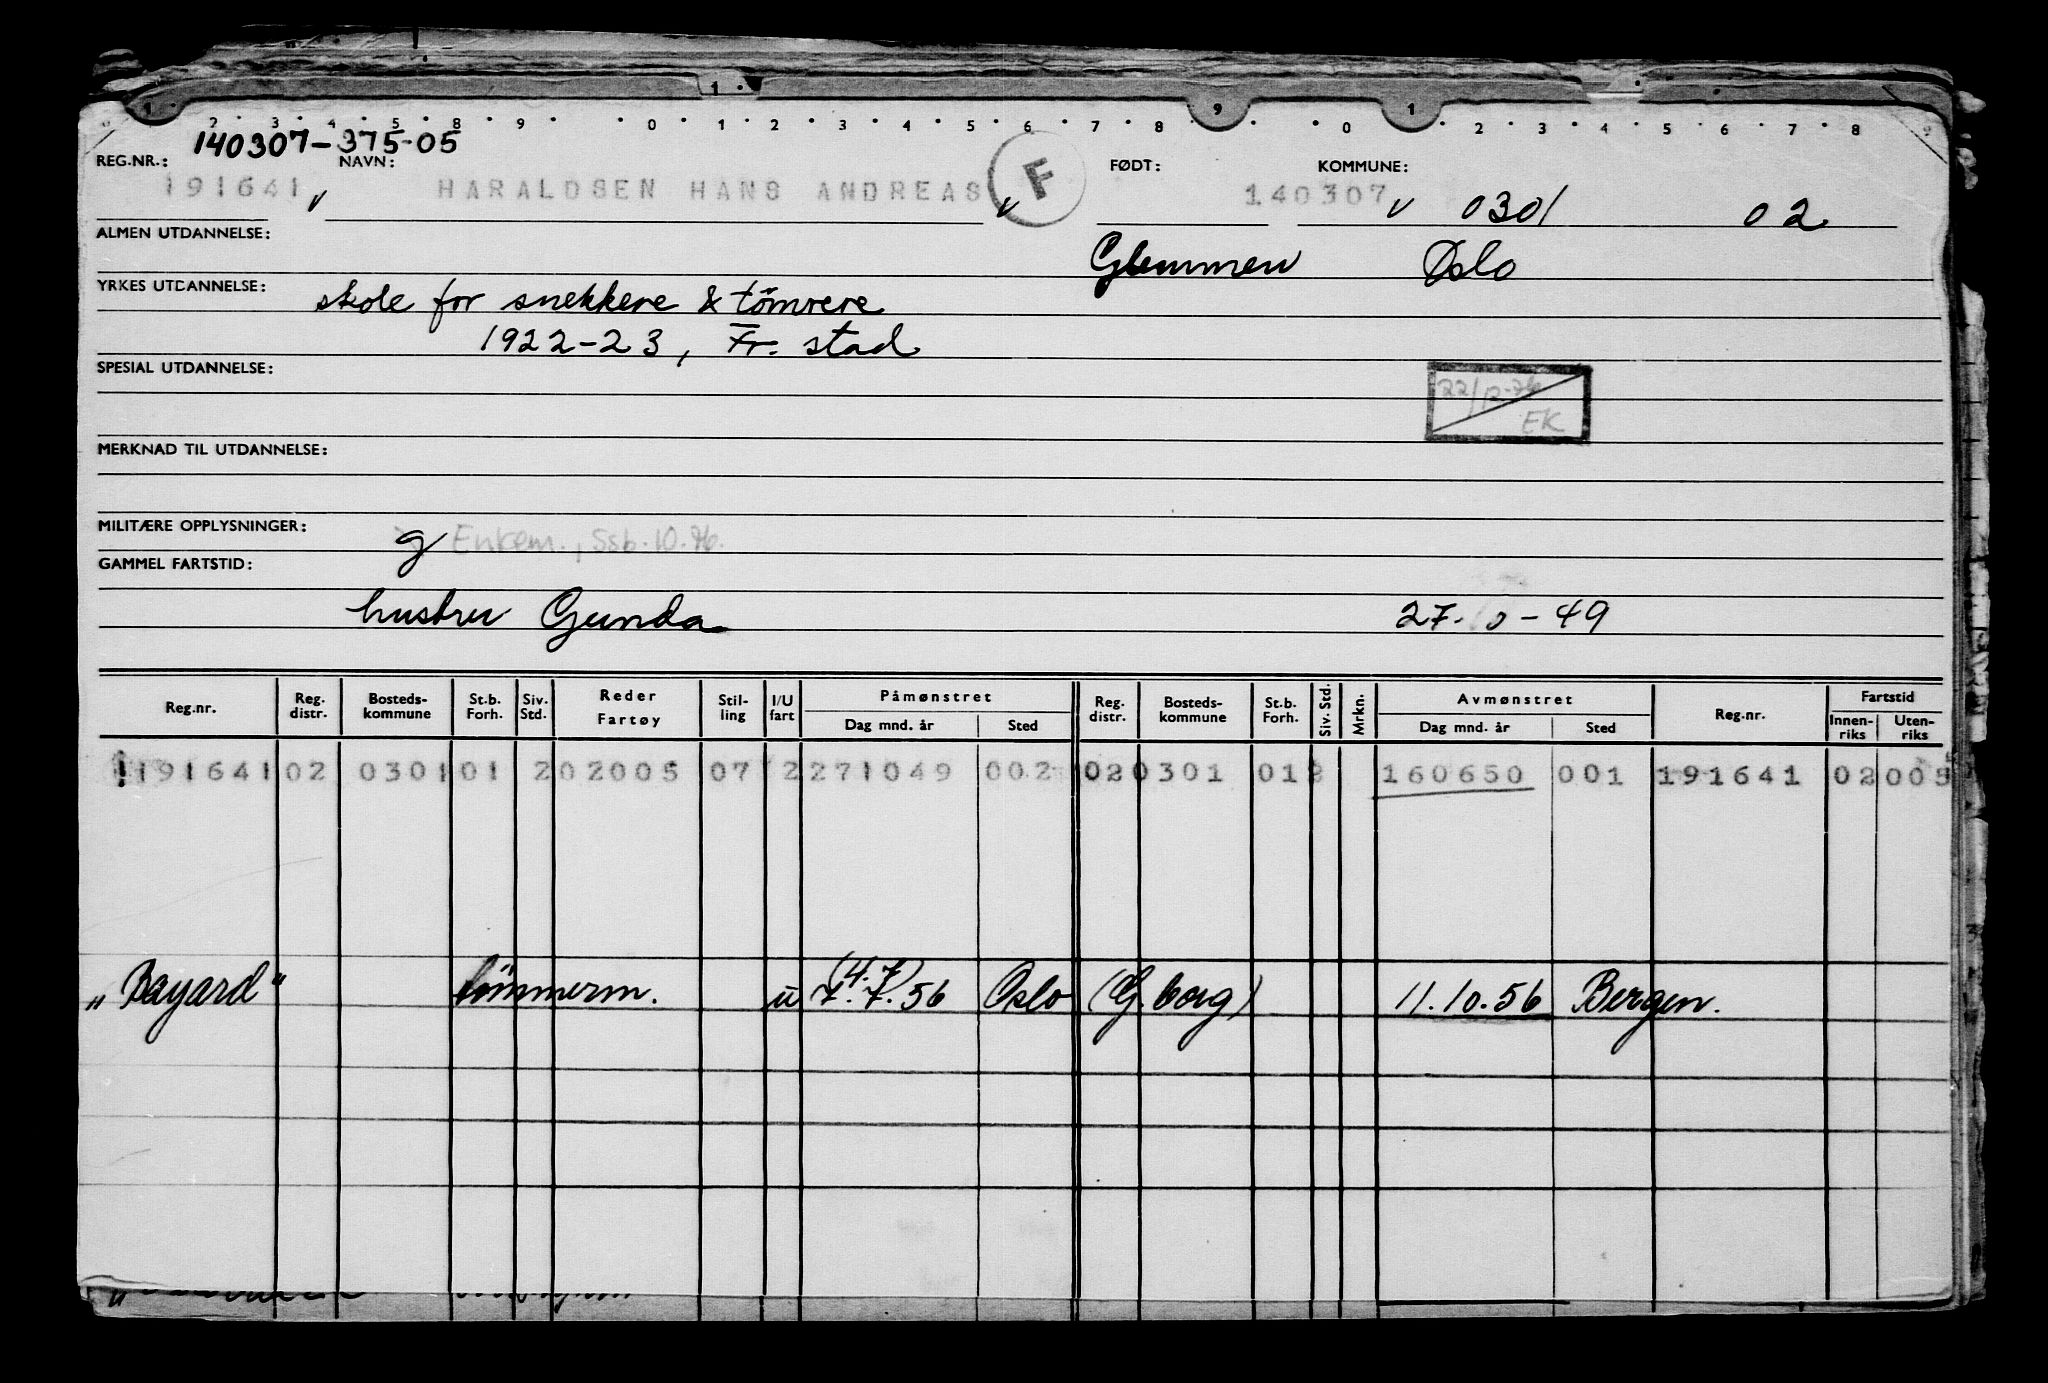 1 9 1
2 3 4 5 8 9 0 1 2 3 4 5 6 7 8 0 2 3 4 5 6 7 8 9
140307-375-05
REG.NR.: NAVN: FØDT: KOMMUNE:
191641 HARALDSEN HANS ANDREAS F 140307 0301 02
ALMEN UTDANNELSE: Glemmen Oslo
YRKES UTDANNELSE: skole for snekkere & tömrere
1922-23, Fr. stad
SPESIAL UTDANNELSE:
22/12-76
EK
MERKNAD TIL UTDANNELSE:
MILITÆRE OPPLYSNINGER: g Enkem., Ssb. 10.76.
GAMMEL FARTSTID:
hustru Gunda 27. - 49
Reg.nr. Reg. distr. Bosteds-kommune St.b. Forh. Siv. Std. Reder Fartøy Stil-ling I/U fart Påmønstret Dag mnd. år Sted Reg. distr. Bosteds-kommune St.b. Forh. Siv. Std. Mrkn. Avmønstret Dag mnd. år Sted Reg.nr. Fartstid Innen-riks Uten-riks
191641 02 0301 01 2 02005 07 2 271049 002 02 0301 01 2 160650 001 191641 02 005
(4.7)
„Bayard" tömmerm. u 7.7.56 Oslo (G.borg) 11.10.56 Bergen.